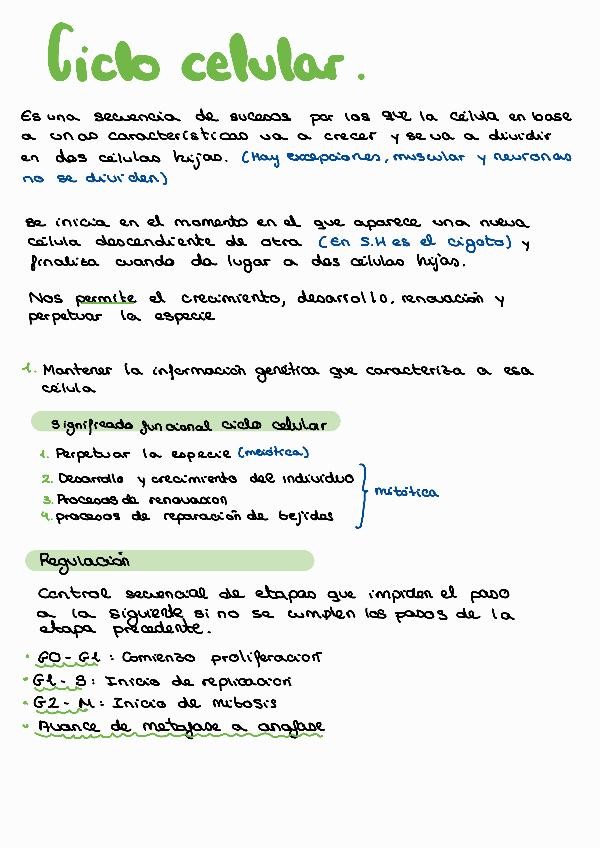 Ciclo celular.
Es una secuencia de sucesos por los que la célula en base
a unas características va a crecer y se va a dividir
en dos células hijas. (Hay excepciones, muscular y neuronas
no se dividen)
Se inicia en el momento en el que aparece una nueva
célula descendiente de otra (En S.H es el cigoto) y
finaliza cuando da lugar a dos células hijas.
Nos permite el crecimiento, desarrollo, renovación y
perpetuar la especie
1. Mantener la información genética que caracteriza a esa
célula
Significado funcional ciclo celular
1. Perpetuar la especie (meiótica)
2. Desarrollo y crecimiento del individuo
3. Procesos de renovacion
4. procesos de reparación de tejidos
mitótica
Regulación
Control secuencial de etapas que impiden el paso
a la siguiente si no se cumplen los pasos de la
etapa precedente.
• G0 - G1 : Comienzo proliferacion
• G1 - S : Inicio de replicacion
• G2 - M : Inicio de mitosis
• Avance de metafase a anafase